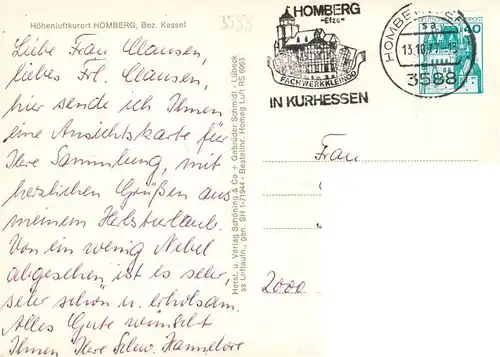 Höhenluftkurort HOMBERG, Bez. Kassel
3588
Liebe Frau Clausen,
liebes Frl. Clausen,
hier sende ich Ihnen
eine Ansichtskarte für
Ihre Sammlung, mit
herzlichen Grüßen aus
meinem Herbsturlaub.
Von ein wenig Nebel
abgesehen ist es sehr,
sehr schön u. erholsam.
Alles Gute wünscht
Ihnen Ihre Schw. Hannelore
Herst. u. Verlag Schöning & Co + Gebrüder Schmidt - Lübeck
ss Luftaufn., gen. SH 1-71944 - Bestellnr. Homeg Luft RS 6063
HOMBERG
-Efze-
FACHWERKKLEINOD
IN KURHESSEN
HOMBERG
sa
13.10.
3588
Frau
2000